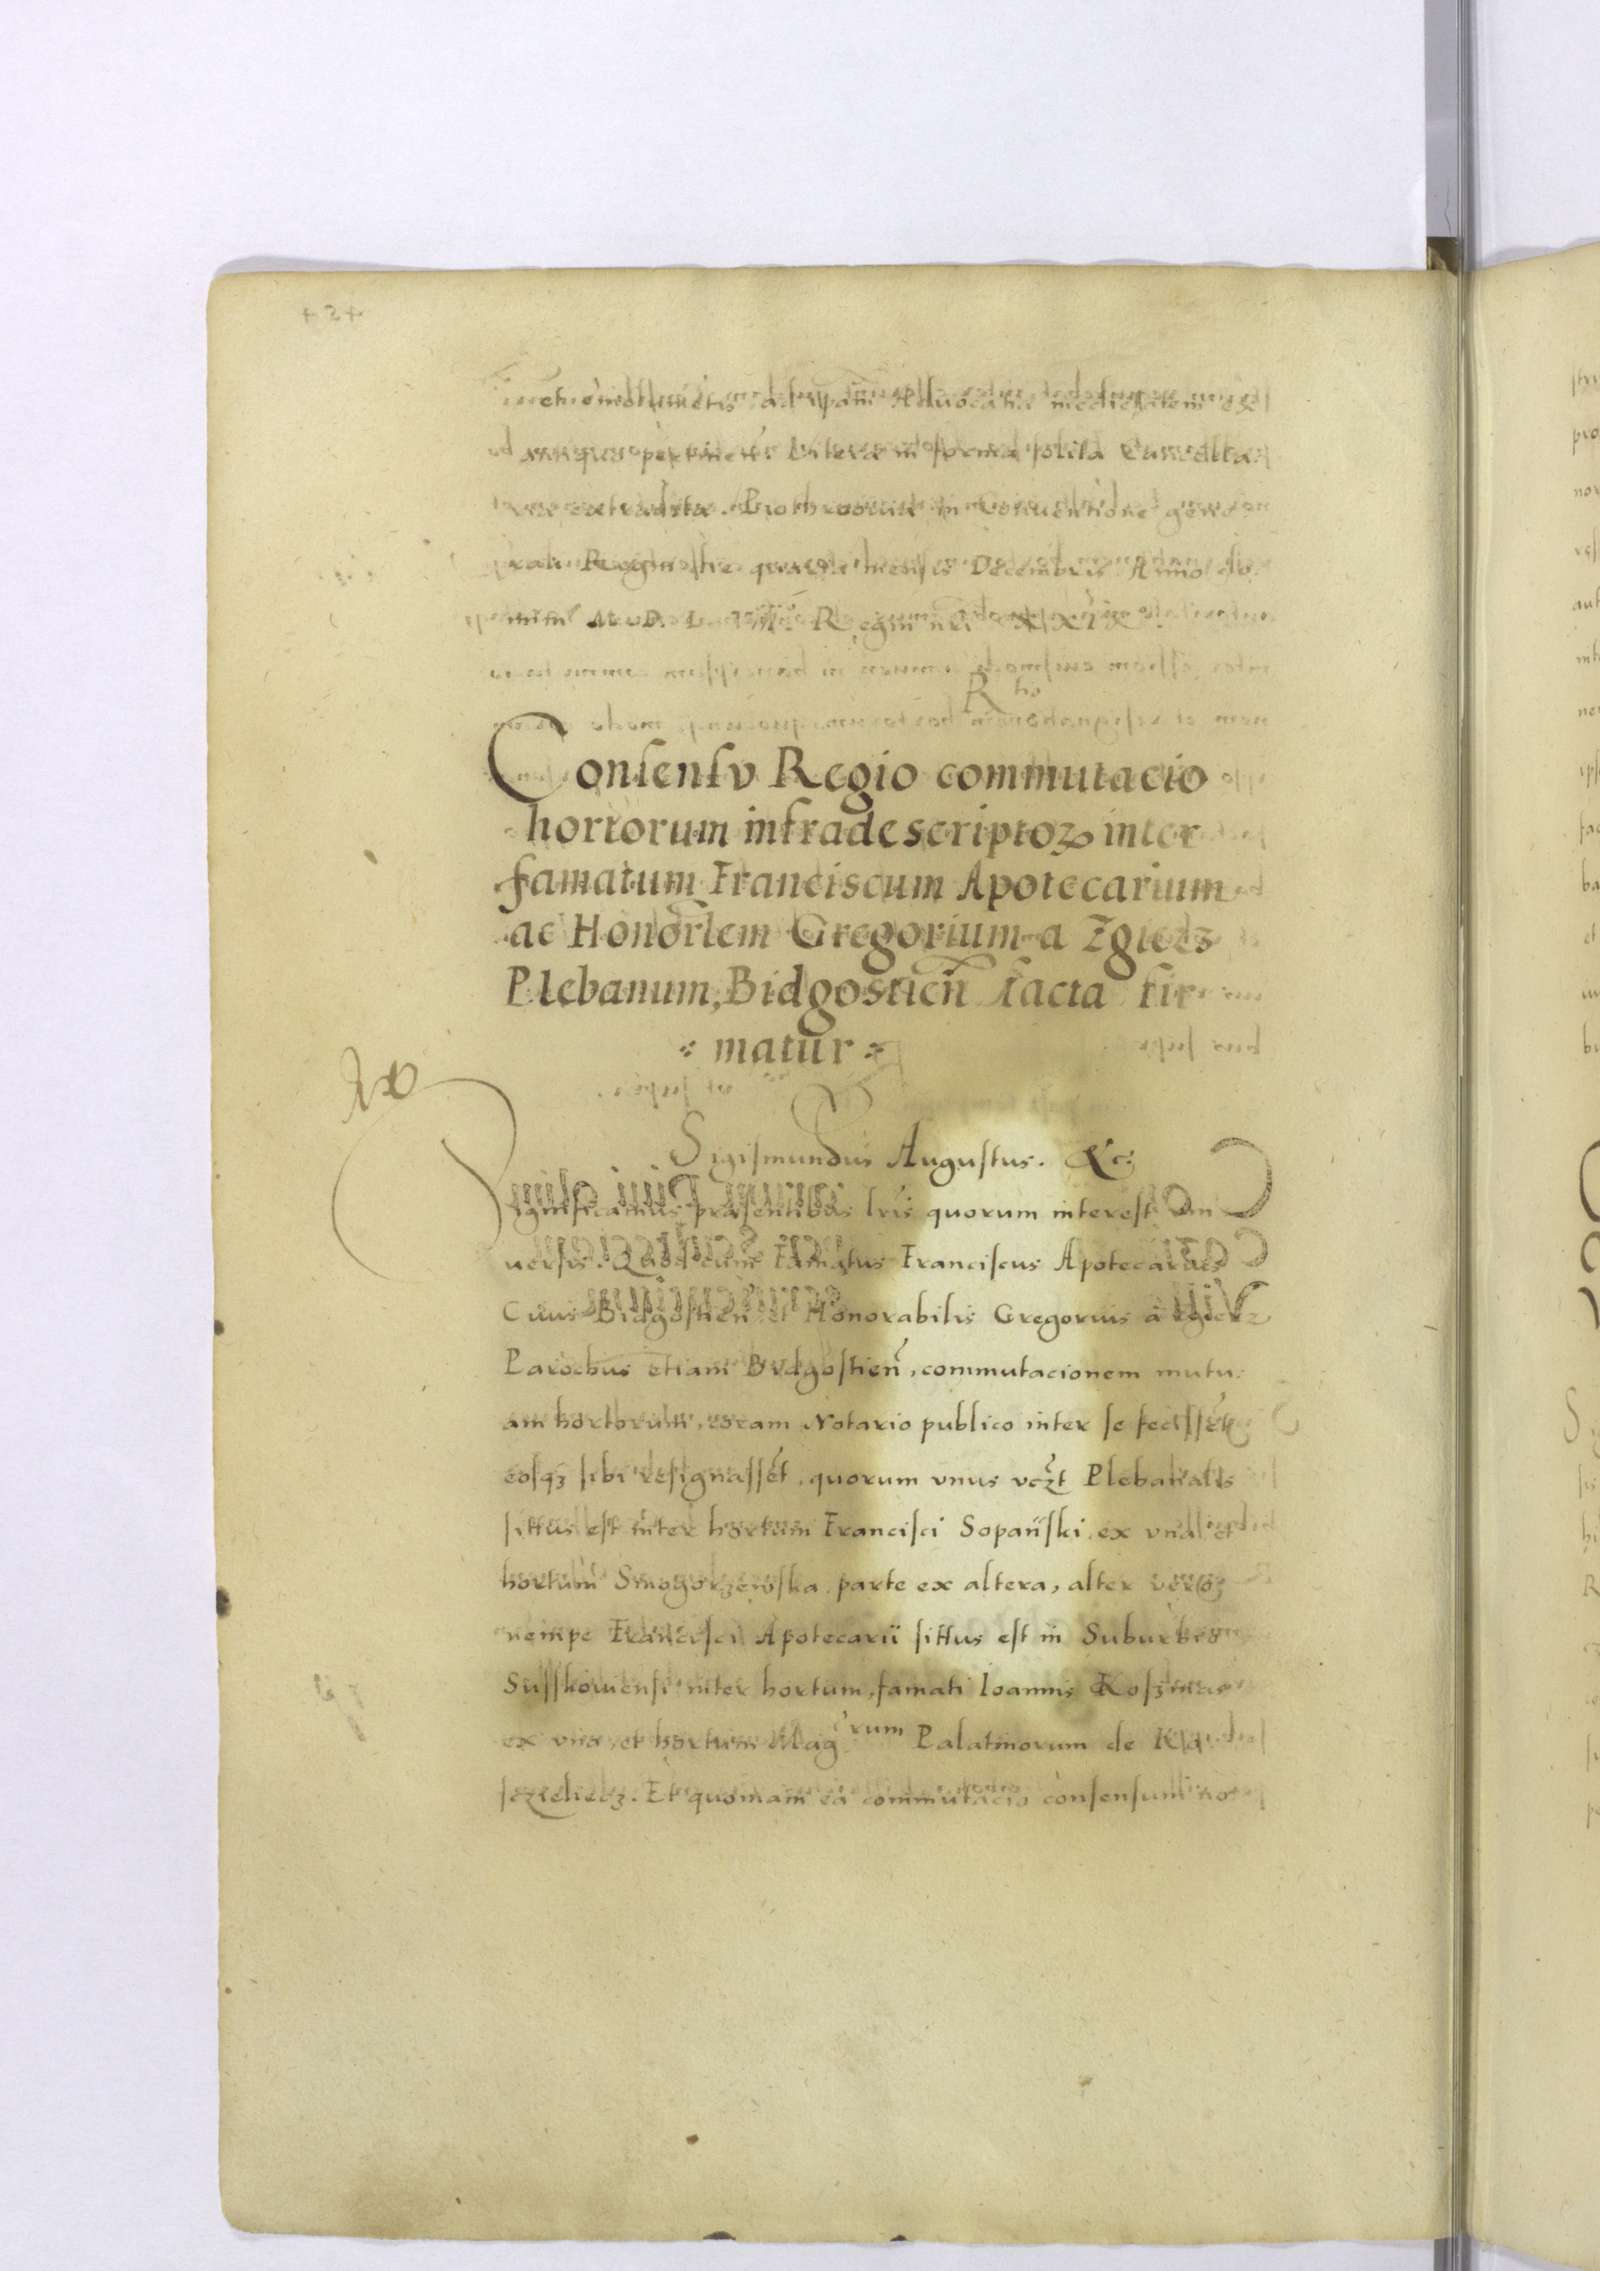 ad ipsam Aduocatiae medietatem ex
antiquo pertinent. Litera in forma solita Cancella:
extradita. Piothrcouiae in Conuentione gene
rali Regni nostri quarta mensis Decembris Anno do:
mini M. D. L. VIII. Regni nri XXIX.
Rho
Consensv Regio commutacio
hortorum infradescriptoꝝ inter
famatum Franciscum Apotecarium
ac Honorlem Gregorium a Zgierz
Plebanum, Bidgostień facta fir
matur
Sigismundus Augustus. &c:
Significamus praesentibus lris quorum interest vni
uersis. Quod cum Famatus Franciscus Apotecarius
Ciuis Bidgostień et Honorabilis Gregorius a Zgierz
Parochus etiam Bydgostień, commutacionem mutu:
am hortorum, coram Notario publico inter se fecissēt
eosqꝫ sibi resignassēt, quorum vnus vczt Plebanalis
sittus est inter hortum Francisci Sopański ex vna et
hortum Smogorzewska parte ex altera, alter vero
nempe Francisci Apotecarii sittus est in Suburbio
Susskouiensi inter hortum, famati Ioannis
ex vna, et hortum Mag̃rum Palatinorum de
Et quoniam ea commutacio consensum no